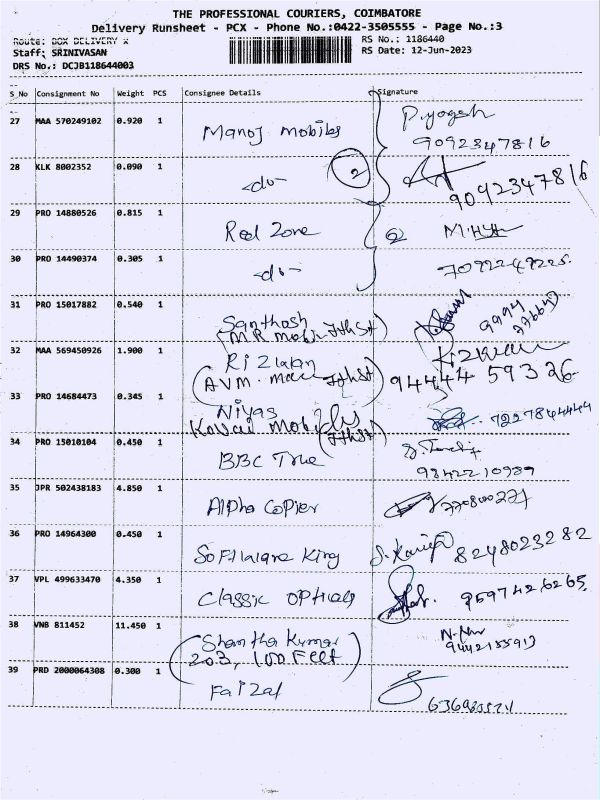 THE PROFESSIONAL COURIERS, COIMBATORE
Delivery Runsheet - PCX - Phone No.:0422-3505555 - Page No.:3
Route: BOX DELIVERY X RS No.: 1186440
Staff: SRINIVASAN RS Date: 12-Jun-2023
DRS No.: DCJB118644003
S_No Consignment No Weight PCS Consignee Details Signature
27 MAA 570249102 0.920 1 Manoj Mobiles P.yogesh
9092347816
28 KLK 8002352 0.090 1 -do- 2
9092347816
29 PRO 14880526 0.815 1 Red Zone
30 PRO 14490374 0.305 1 -do-
31 PRO 15017882 0.540 1 Santhosh
(MR Mobi 7th St)
32 MAA 569450926 1.900 1 Rizwan
(AVM. 7th St) 94444 59326
33 PRO 14684473 0.345 1 Niyas 7227844444
Kovai Mobiles
(7th St)
34 PRO 15010104 0.450 1 BBC True
9842210989
35 JPR 502438183 4.850 1 Alpha Copier
36 PRO 14964300 0.450 1 Software King 8248023282
37 VPL 499633470 4.350 1 Classic Opticals 9597426265
38 VNB 811452 11.450 1 Shantha Kumar
(203, 100 Feet) 9442155913
39 PRD 2000064308 0.300 1 Faizal